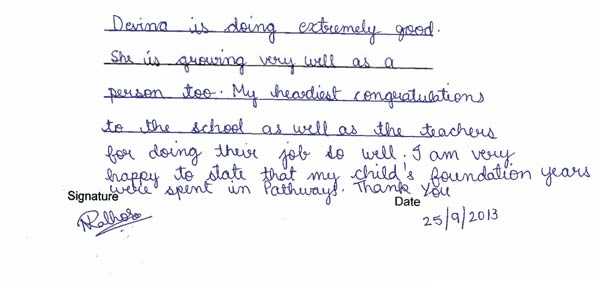 Devina is doing extremely good.
She is growing very well as a
person too. My heardiest congratulations
to the school as well as the teachers
for doing their job so well. I am very
happy to state that my child's foundation years
were spent in Pathways. Thank You
Signature
Date
25/9/2013